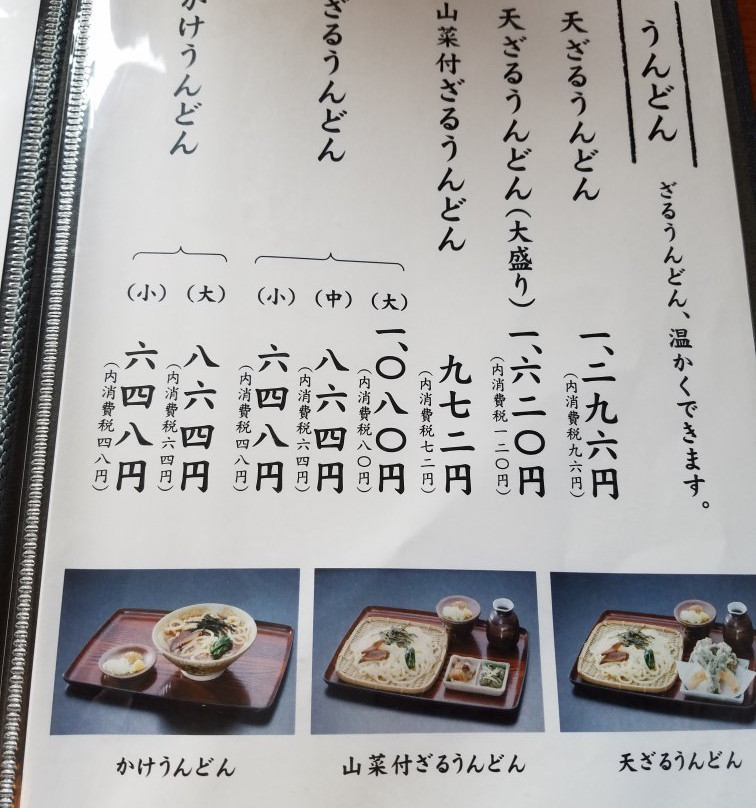 うんどん
ざるうんどん、温かくできます。
天ざるうんどん
一、二九六円
(内消費税九六円)
天ざるうんどん(大盛り)
一、六二〇円
(内消費税一二〇円)
山菜付ざるうんどん
九七二円
(内消費税七二円)
ざるうんどん
(大)
一、〇八〇円
(内消費税八〇円)
(中)
八六四円
(内消費税六四円)
(小)
六四八円
(内消費税四八円)
かけうんどん
(大)
八六四円
(内消費税六四円)
(小)
六四八円
(内消費税四八円)
かけうんどん
山菜付ざるうんどん
天ざるうんどん